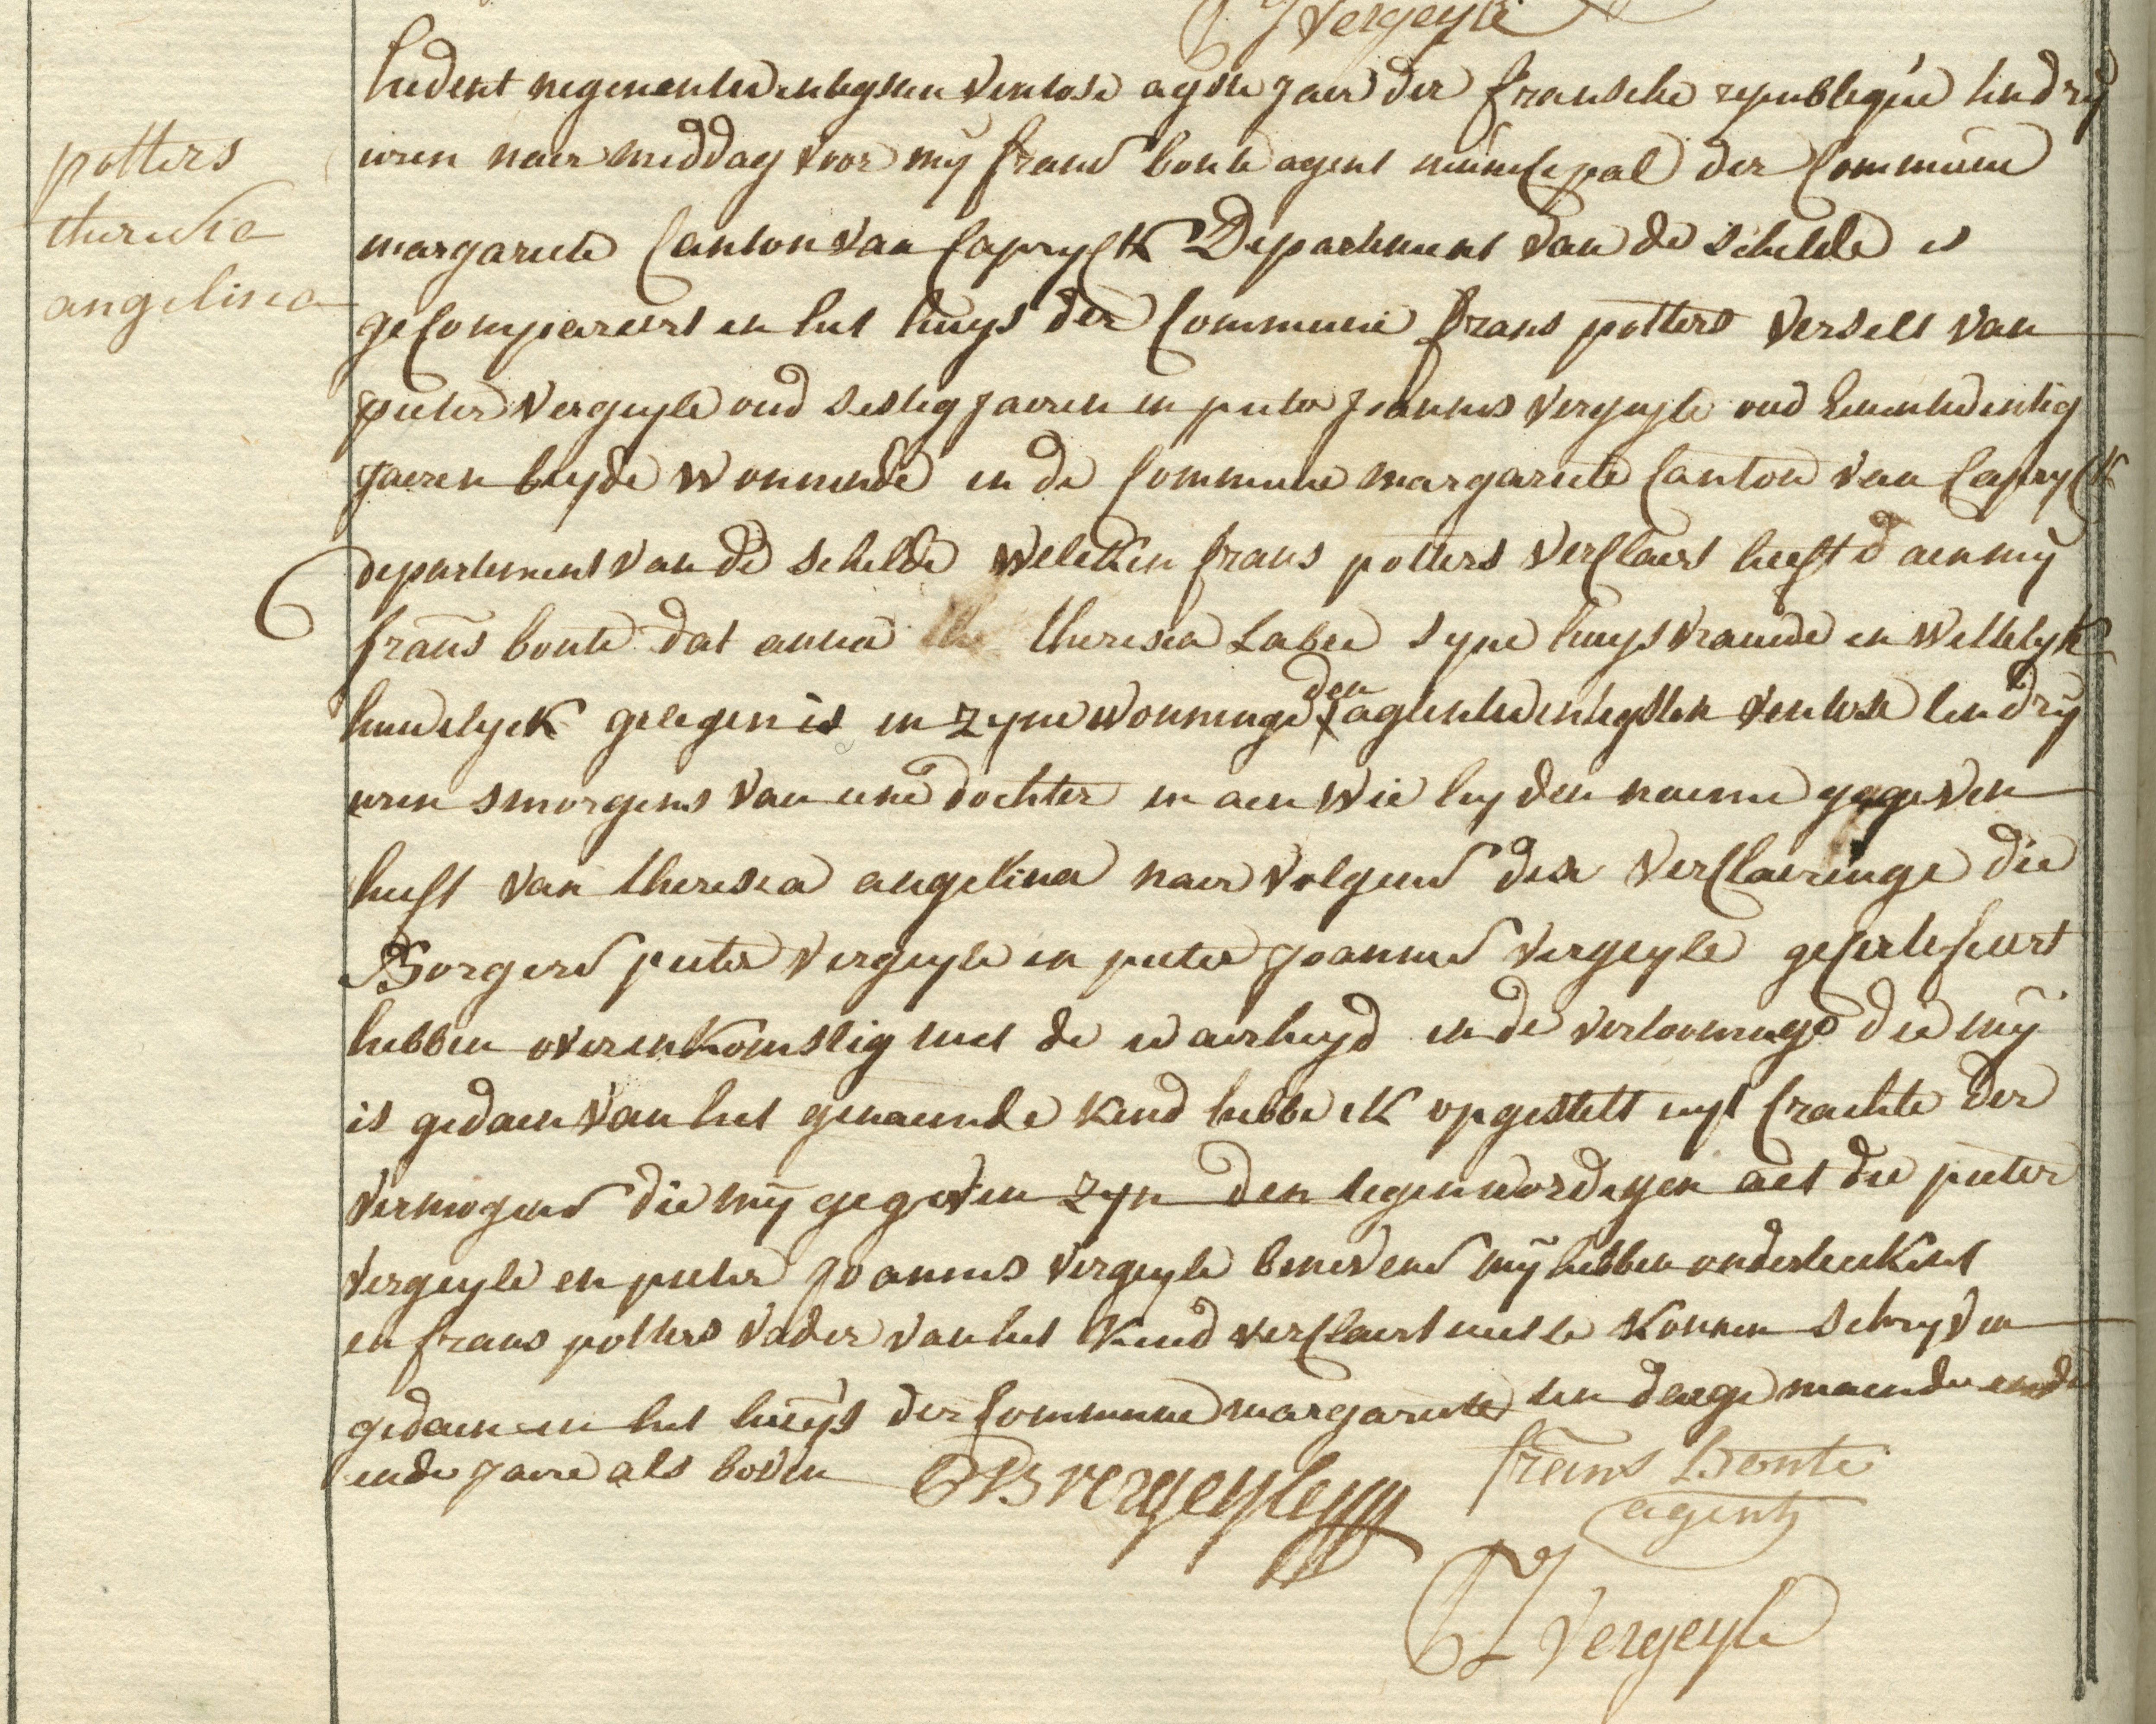 J Vergeyle
hedent negenentwentigsten ventose agste jaer der fransche republique ten dry
potters
theresia
angelina
uren naer middag voor mij frans bonte agent municipal der Commune
margariete Canton van Capryck Departement van de schelde is
geCompareert in het huys der Commune frans potters verselt van
pieter vergeyle oud sestig jaeren en pieter joannes vergeyle oud eenentwintig
jaeren beyde wonnende in de Commune margariete Canton van Capryck
departement van de schelde welcken frans potters verClaert heeft aen mij
frans bonte dat anna theresia Labee syne huysvrauwe in wettelyk
huwelyck gelegen is in zyne wonninge den agtentwentigsten ventose ten dry
uren smorgens van eene dochter en aen wie hy den naeme gegeven
heeft van theresia angelina naer volgens dese verClaeringe die
Borgers pieter vergeyle en pieter joannes vergeyle geCertefieert
hebben overenkomstig met de waerheyd en de vertooninge die mij
is gedaen van het genaemde kind hebbe ik opgestelt uyt Crachte der
vermogens die mij gegeven zyn den tegenwordigen act die pieter
vergeyle en pieter joannes vergeyle benevens mij hebben onderteekent
en frans potters vader van het kind verClaert niet te konnen schryven
gedaen in het huys der Commune margariete ten daege maende ende
ende jaere als boven
PB vergeyle
frans Bonte
agent
PJ Vergeyle